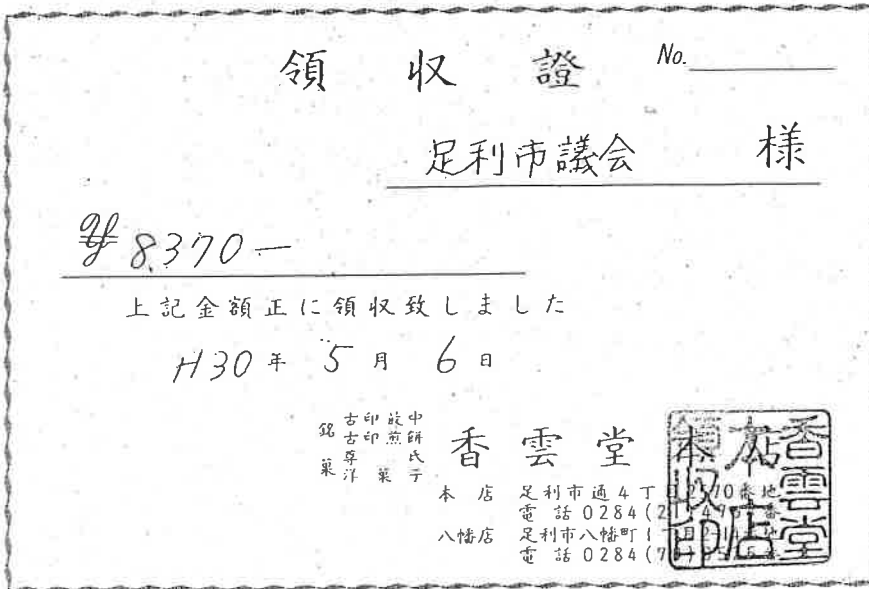 領収證 No.
足利市議会 様
¥8,370―
上記金額正に領収致しました
H30年 5月 6日
銘菓
香雲堂
本店 足利市通4丁目2570番地
電話0284(21)4964番
八幡店 足利市八幡町1丁目
電話0284(7
香雲堂
本店
領収印